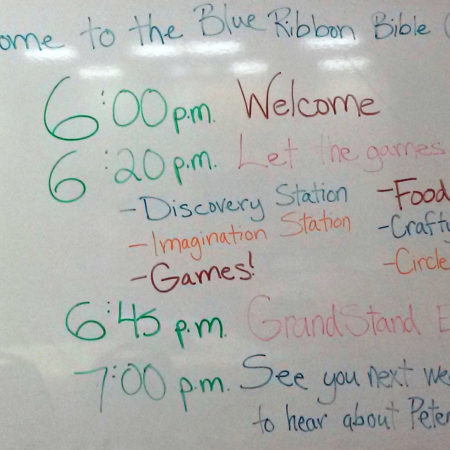 ome to the Blue Ribbon Bible
6:00 p.m. Welcome
6:20 p.m. Let the games
- Discovery Station - Food
- Imagination Station - Craft
- Games! - Circle
6:45 p.m. GrandStand E
7:00 p.m. See you next we
to hear about Peter